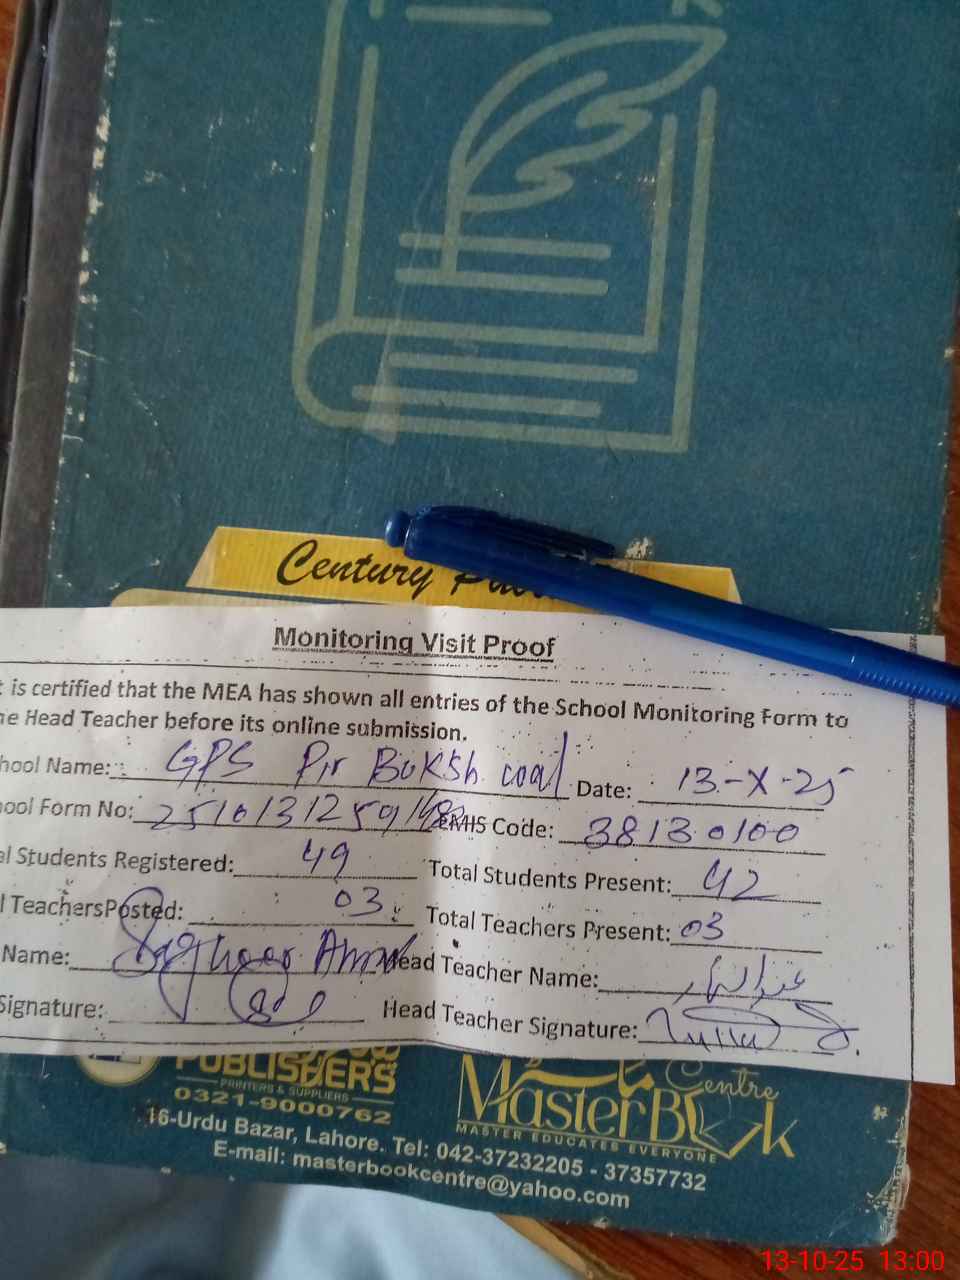 Century
Monitoring Visit Proof
t is certified that the MEA has shown all entries of the School Monitoring Form to
he Head Teacher before its online submission.
hool Name: GPS Pir Buksh coal Date: 13-X-25
hool Form No: EMIS Code: 38130100
al Students Registered: 49 Total Students Present: 42
l TeachersPosted: 03 Total Teachers Present: 03
Name: Head Teacher Name:
Signature: Head Teacher Signature:
PUBLISHERS
PRINTERS & SUPPLIERS
0321-9000762
MasterBook Centre
MASTER EDUCATES EVERYONE
16-Urdu Bazar, Lahore. Tel: 042-37232205 - 37357732
E-mail: masterbookcentre@yahoo.com
13-10-25 13:00